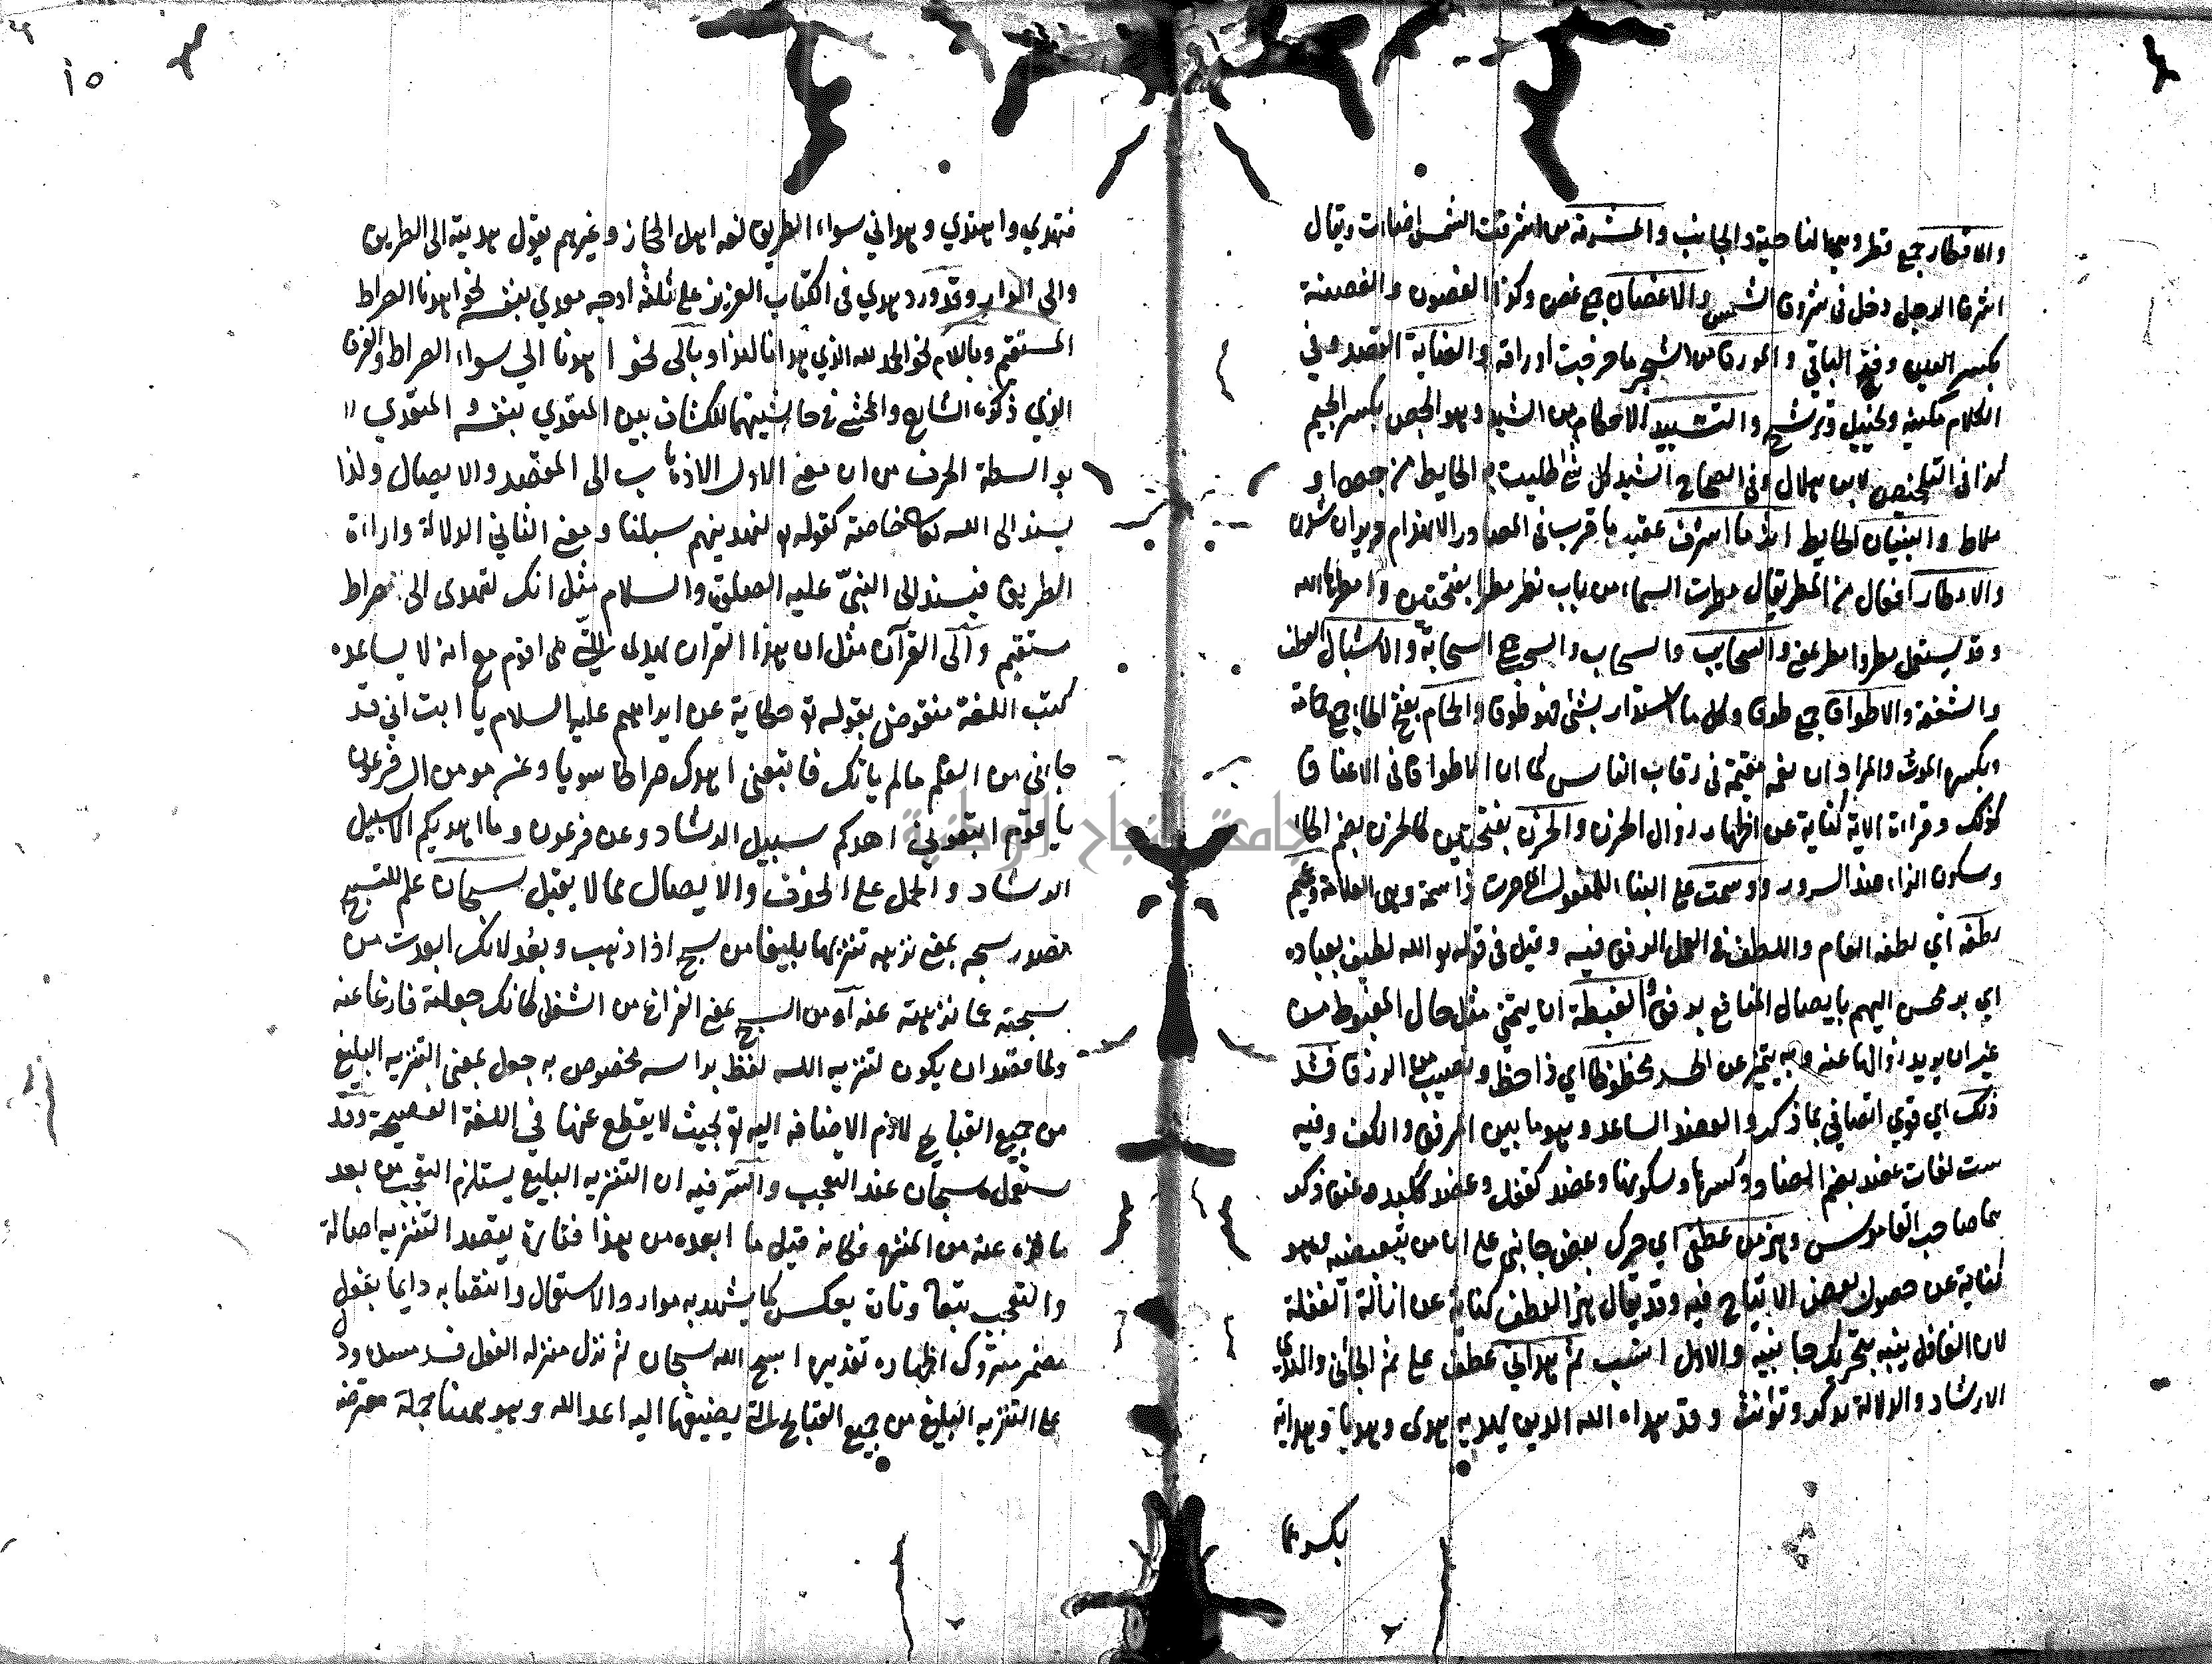 والاقطار جمع قطر وهي الناحية والجانب والمشرقة من اشرقت الشمس اضاءت ويقال
اشرق الرجل دخل في شروق الشمس والاغصان جمع غصن وكذا الغصون والغصنة
بكسر الغين وفتح الباقي والمورقة من الشجر ما خرجت اوراقه والعناية القصد وفي
الكلام مكنية وتخييل وترشيح والتشييد الاحكام من الشيد وهو الجص بكسر الجيم
كذا في التلخيص لابن هلال وفي الصحاح الشيد كل شئ طليت به الحايط من جص او
ملاط والبنيان الحايط اثر ما اشرف عقيد ما قرب في المصادر الانهدام ويران شدن
والامطار افعال من المطر يقال مطرت السماء من باب نظر مطرا بفتحتين وامطرها الله
وقد يستعمل مطر وامطر بمعنى والسحايب والسحاب والسحب جمع السحابة والاشبال العطف
والشفقة والاطواق جمع طوق وكل ما استدار بشئ فهو طوق والحمام بفتح الحاء جمع حمامة
وبكسرها الموت والمراد ان نعمه مقيمة في رقاب الناس كما ان الاطواق في الاعناق
كذلك وقراءة الاية كناية عن اظهار زوال الحزن والحزن بفتحتين كالحزن بضم الحاء
وسكون الزاء ضد السرور ووسمت على البناء للمفعول اي صرت ذا سمة وهي العلامة وعميم
لطفه اي لطفه العام واللطف في العمل الرفق فيه وقيل في قوله تع الله لطيف بعباده
اي بر محسن اليهم بايصال المنافع برفق والغبطة ان يتمنى مثل حال المغبوط من
غير ان يريد زوالها عنه وبه يتميز عن الحسد محظوظا اي ذا حظ ونصيب من الرزق فشد
ذلك اي قوي اتصافي بما ذكر والعضد الساعد وهو ما بين المرفق والكتف وفيه
ست لغات عضد بضم الضاد وكسرها وسكونها وعضد كقفل وعضد ككبد وعنق ذكر
ها صاحب القاموس وهز من عطفي اي حرك بعض جانبي على ان من تبعيضية وهو
كناية عن حصول بعض الارتياح فيه وقد يقال هز العطف كناية عن ازالة الغفلة
لان الغافل ينبه بتحريك جانبيه والاول انسب ثم هداني عطف على ثم الجائي والهدى
الارشاد والدلالة يذكر ويؤنث وقد هداه الله الدين يهديه هدى وهديا وهداية
بكسرها
١٥
فتهدي واهتدي وهداني سواء الطريق لغة اهل الحجاز وغيرهم يقول هديته الى الطريق
والى الدار وقد ورد هدي في الكتاب العزيز على ثلثة اوجه معدي بنفسه نحو اهدنا الصراط
المستقيم وباللام نحو الحمد لله الذي هدانا لهذا وبالى نحو اهدنا الى سواء الصراط والفرق
الذي ذكره الشارح والمحشي في حاشيتهما للكشاف بين المتعدي بنفسه والمتعدي
بواسطة الحرف من ان معنى الاول الاذهاب الى المقصد والايصال ولذا
يسند الى الله تعالى خاصة كقوله تع لنهدينهم سبلنا ومعنى الثاني الدلالة واراءة
الطريق فيسند الى النبي عليه الصلوة والسلام مثل انك لتهدى الى صراط
مستقيم والى القرآن مثل ان هذا القران يهدى للتي هي اقوم مع انه لا يساعده
كتب اللغة منقوض بقوله تع حكاية عن ابراهيم عليه السلام يا ابت اني قد
جاءني من العلم مالم يأتك فاتبعني اهدك صراطا سويا وعن مومن ال فرعون
يا قوم اتبعوني اهدكم سبيل الرشاد وعن فرعون وما اهديكم الا سبيل
الرشاد والحمل على الحذف والايصال مما لا يقبل سبحان علم للتسبيح
مصدر سبحه بمعنى نزهه تنزيها بليغا من سبح اذا ذهب وبعد لانك ابعدت من
سبحته عما نزهته عنه او من السبح بمعنى الفراغ من الشغل كانك جعلته فارغا عنه
ولما قصد ان يكون لتنزيه الله لفظ براسه مخصوص به جعل بمعنى التنزيه البليغ
من جميع القبايح لازم الاضافه اليه تع بحيث لا يقطع عنها في اللغة الفصيحة وقد
يستعمل سبحان عند التعجب والسر فيه ان التنزيه البليغ يستلزم التعجب من بعد
ما نزه عنه من المنزه فكانه قيل ما ابعده من هذا فتارة يقصد التنزيه اصالة
والتعجب تبعا وتارة يعكس كما يشهد به موارد الاستعمال وانتصابه دايما بفعل
مضمر متروك اظهاره تقديره اسبح الله سبحان ثم نزل منزلة الفعل فسد مسده ود
على التنزيه البليغ من جميع القبايح التي يضيفها اليه اعداء الله وهو ههنا جملة معترضة
جامعة النجاح الوطنية